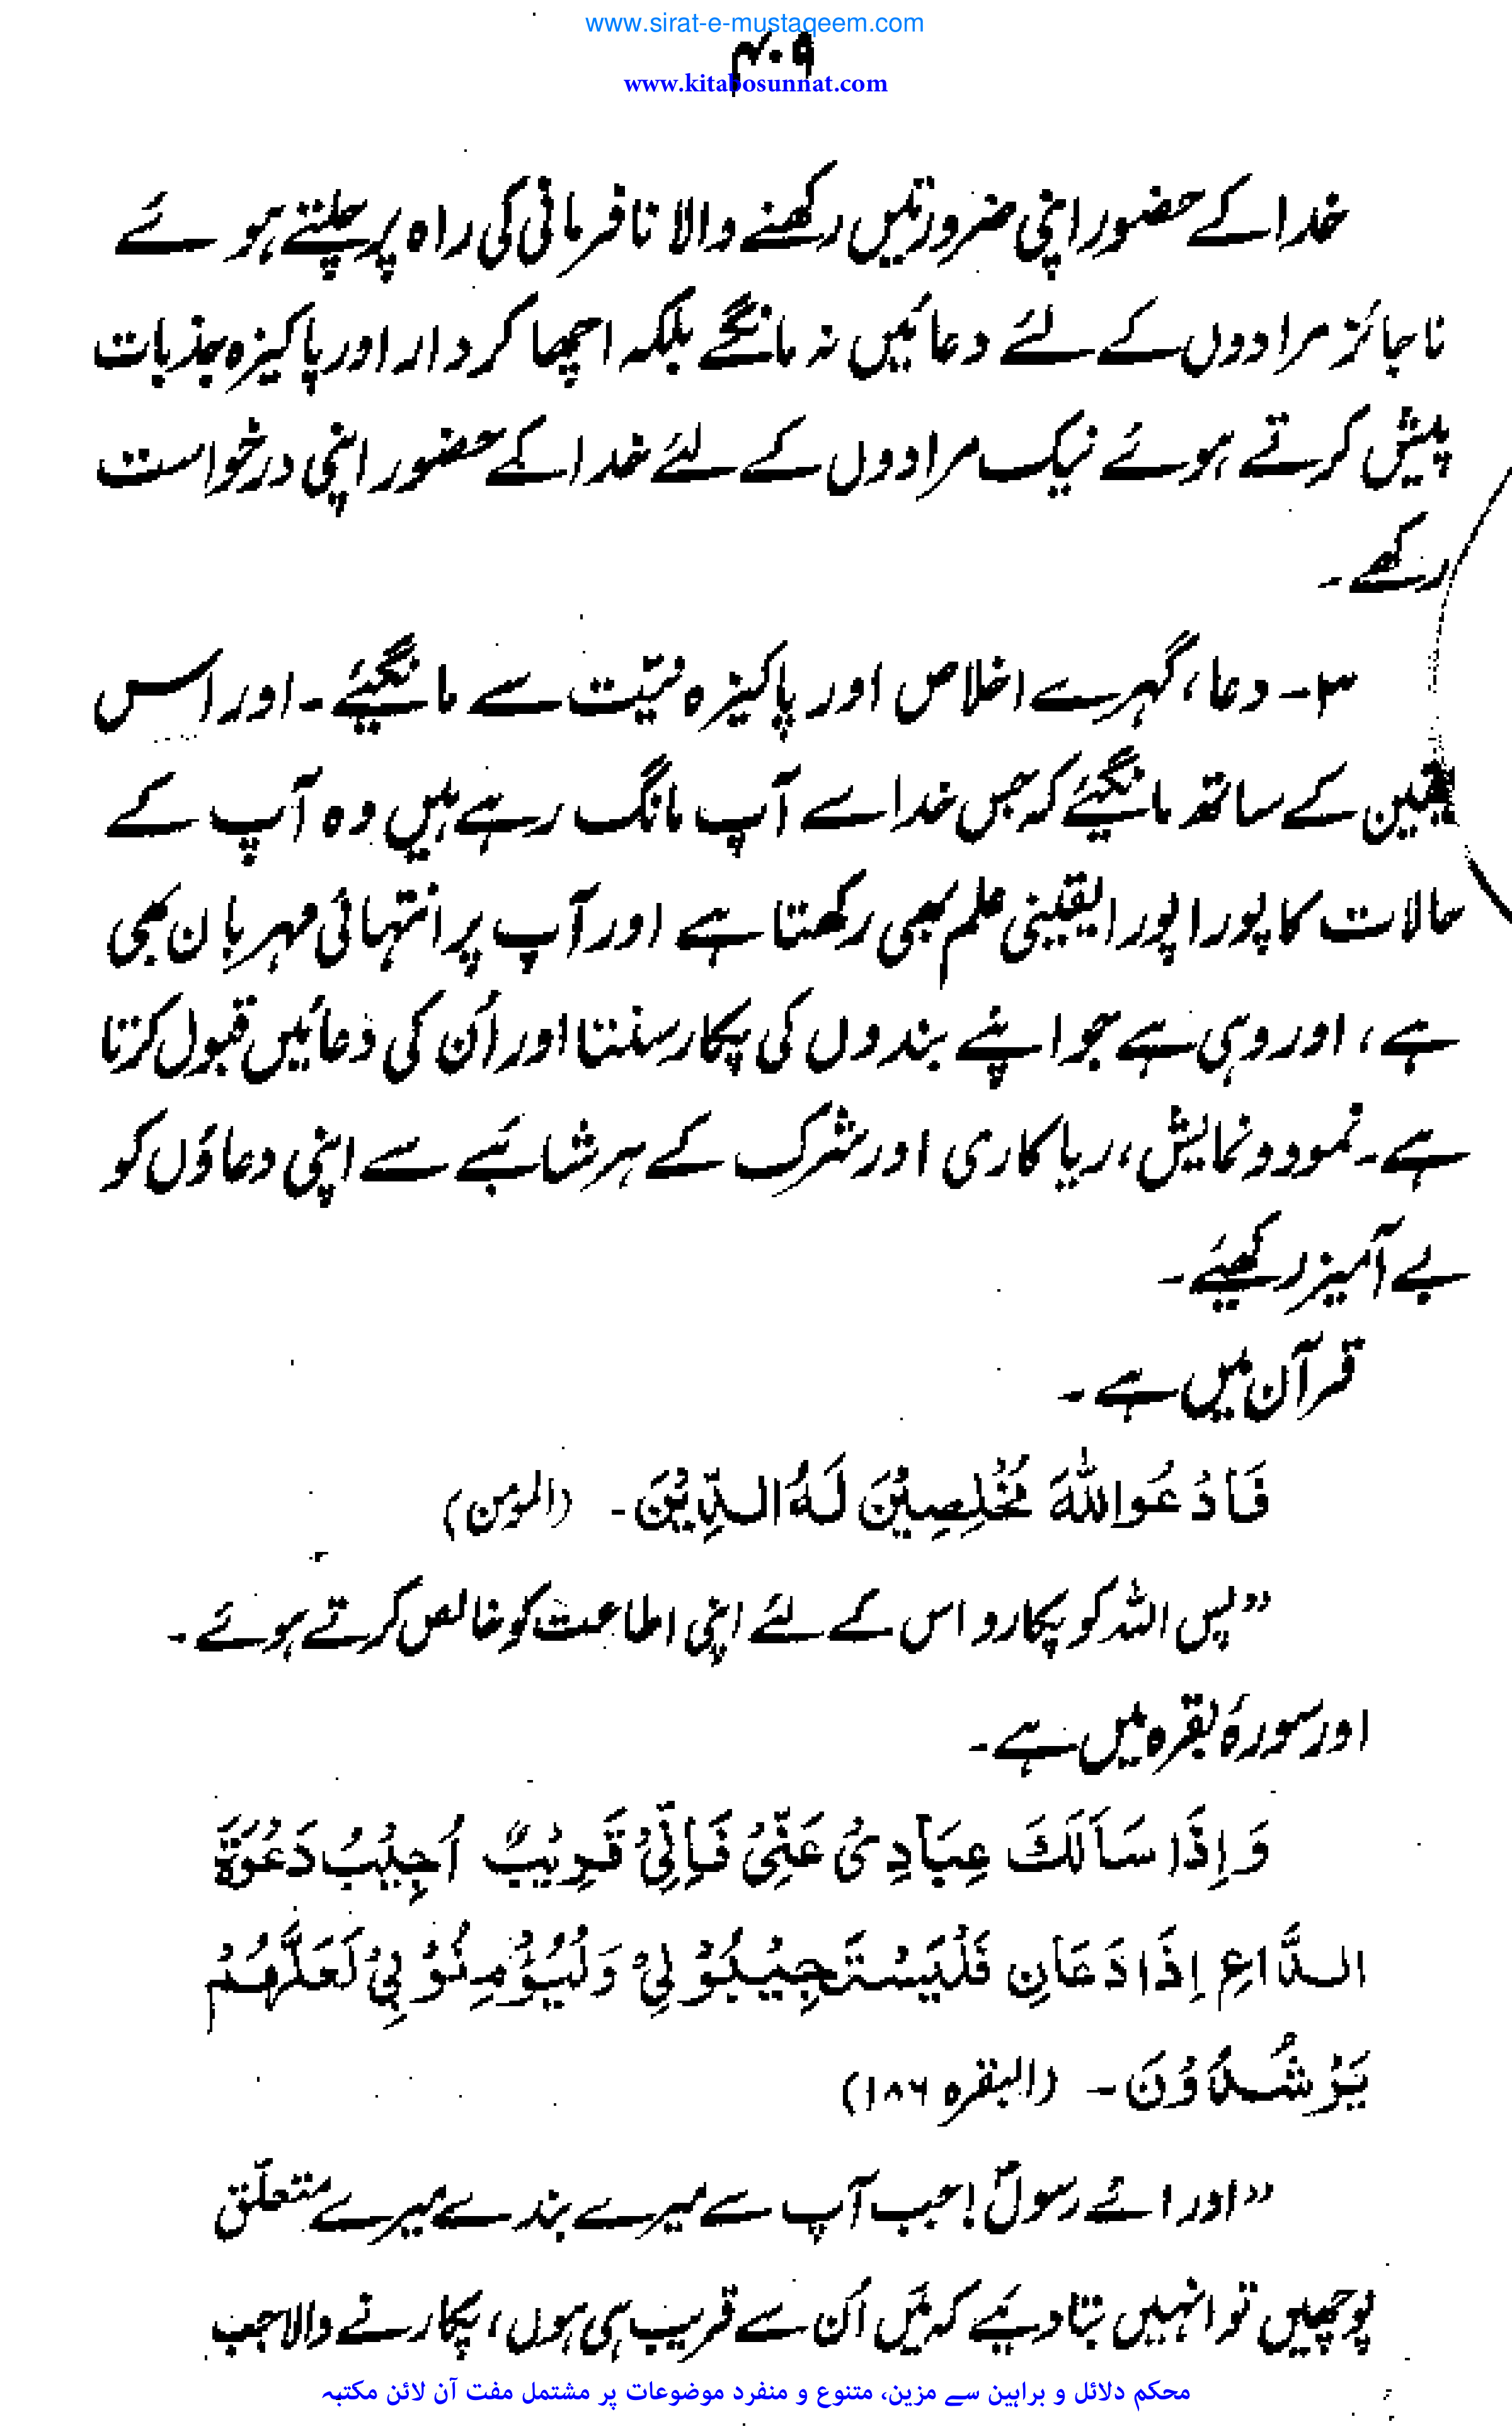 www.sirat-e-mustaqeem.com
۴۰۹
www.kitabosunnat.com
خدا کے حضور اپنی ضرورتیں رکھنے والا نافرمانی کی راہ پر چلتے ہوئے
ناجائز مرادوں کے لئے دعائیں نہ مانگے بلکہ اچھا کردار اور پاکیزہ جذبات
پیش کرتے ہوئے نیک مرادوں کے لئے خدا کے حضور اپنی درخواست
رکھے۔
۳۔ دعا، گہرے اخلاص اور پاکیزہ نیّت سے مانگیئے۔ اور اس
یقین کے ساتھ مانگیئے کہ جس خدا سے آپ مانگ رہے ہیں وہ آپ کے
حالات کا پورا پورا یقینی علم بھی رکھتا ہے اور آپ پر انتہائی مہربان بھی
ہے، اور وہی ہے جو اپنے بندوں کی پکار سنتا اور اُن کی دعائیں قبول کرتا
ہے۔ نمود و نمایش، ریاکاری اور شرک کے ہر شائبے سے اپنی دعاؤں کو
بے آمیز رکھیئے۔
قرآن میں ہے۔
فَادْعُوا اللّٰهَ مُخْلِصِيْنَ لَهُ الدِّيْنَ۔ (المؤمن)
”پس اللہ کو پکارو اس کے لئے اپنی اطاعت کو خالص کرتے ہوئے۔
اور سورۂ بقرہ میں ہے۔
وَاِذَا سَاَلَكَ عِبَادِىْ عَنِّىْ فَاِنِّىْ قَرِيْبٌ ؕ اُجِيْبُ دَعْوَةَ
الدَّاعِ اِذَا دَعَانِ فَلْيَسْتَجِيْبُوْا لِىْ وَلْيُؤْمِنُوْا بِىْ لَعَلَّهُمْ
يَرْشُدُوْنَ۔ (البقرہ ۱۸۶)
”اور ائے رسولؐ! جب آپ سے میرے بندے میرے متعلّق
پوچھیں تو انہیں بتا دیئے کہ مَیں اُن سے قریب ہی ہوں، پکارنے والا جب
محکم دلائل و براہین سے مزین، متنوع و منفرد موضوعات پر مشتمل مفت آن لائن مکتبہ